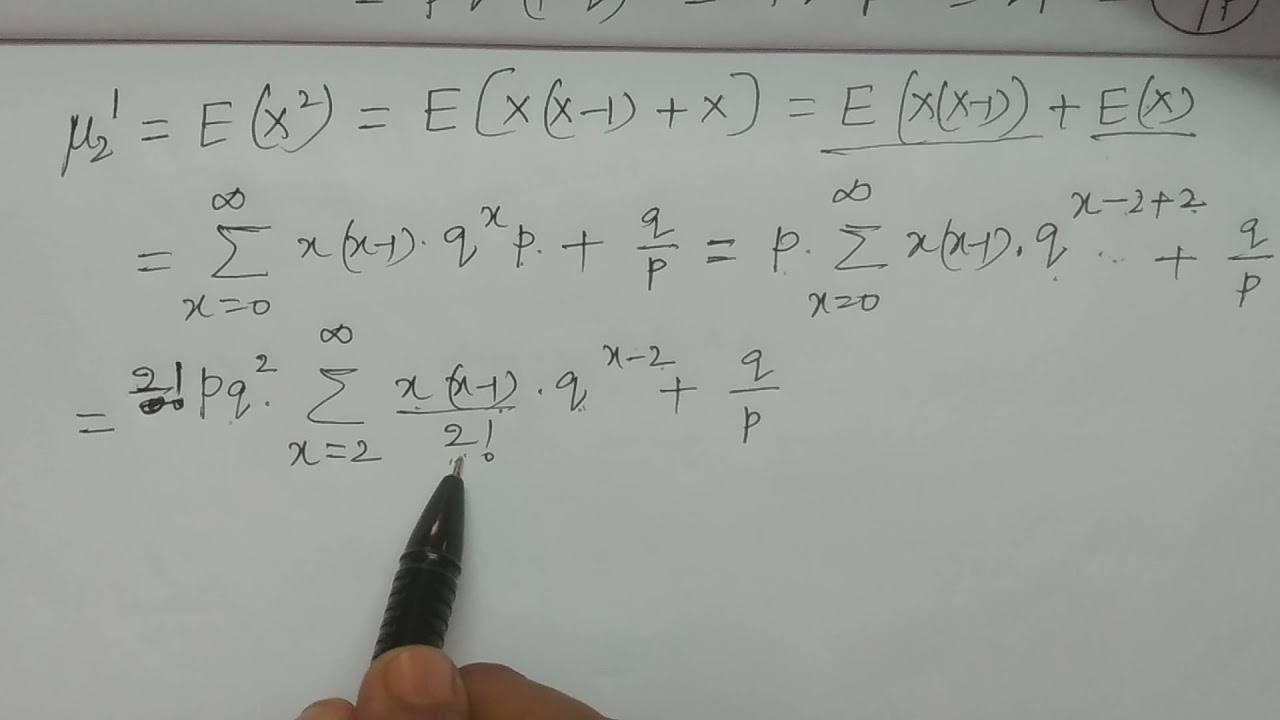 μ₂' = E(X²) = E[X(X-1) + X] = E(X(X-1)) + E(X)
= ∑_{x=0}^{∞} x(x-1)· q^x p. + q/p = p. ∑_{x=0}^{∞} x(x-1). q^{x-2+2} + q/p
= 2! pq². ∑_{x=2}^{∞} x(x-1)/2! · q^{x-2} + q/p